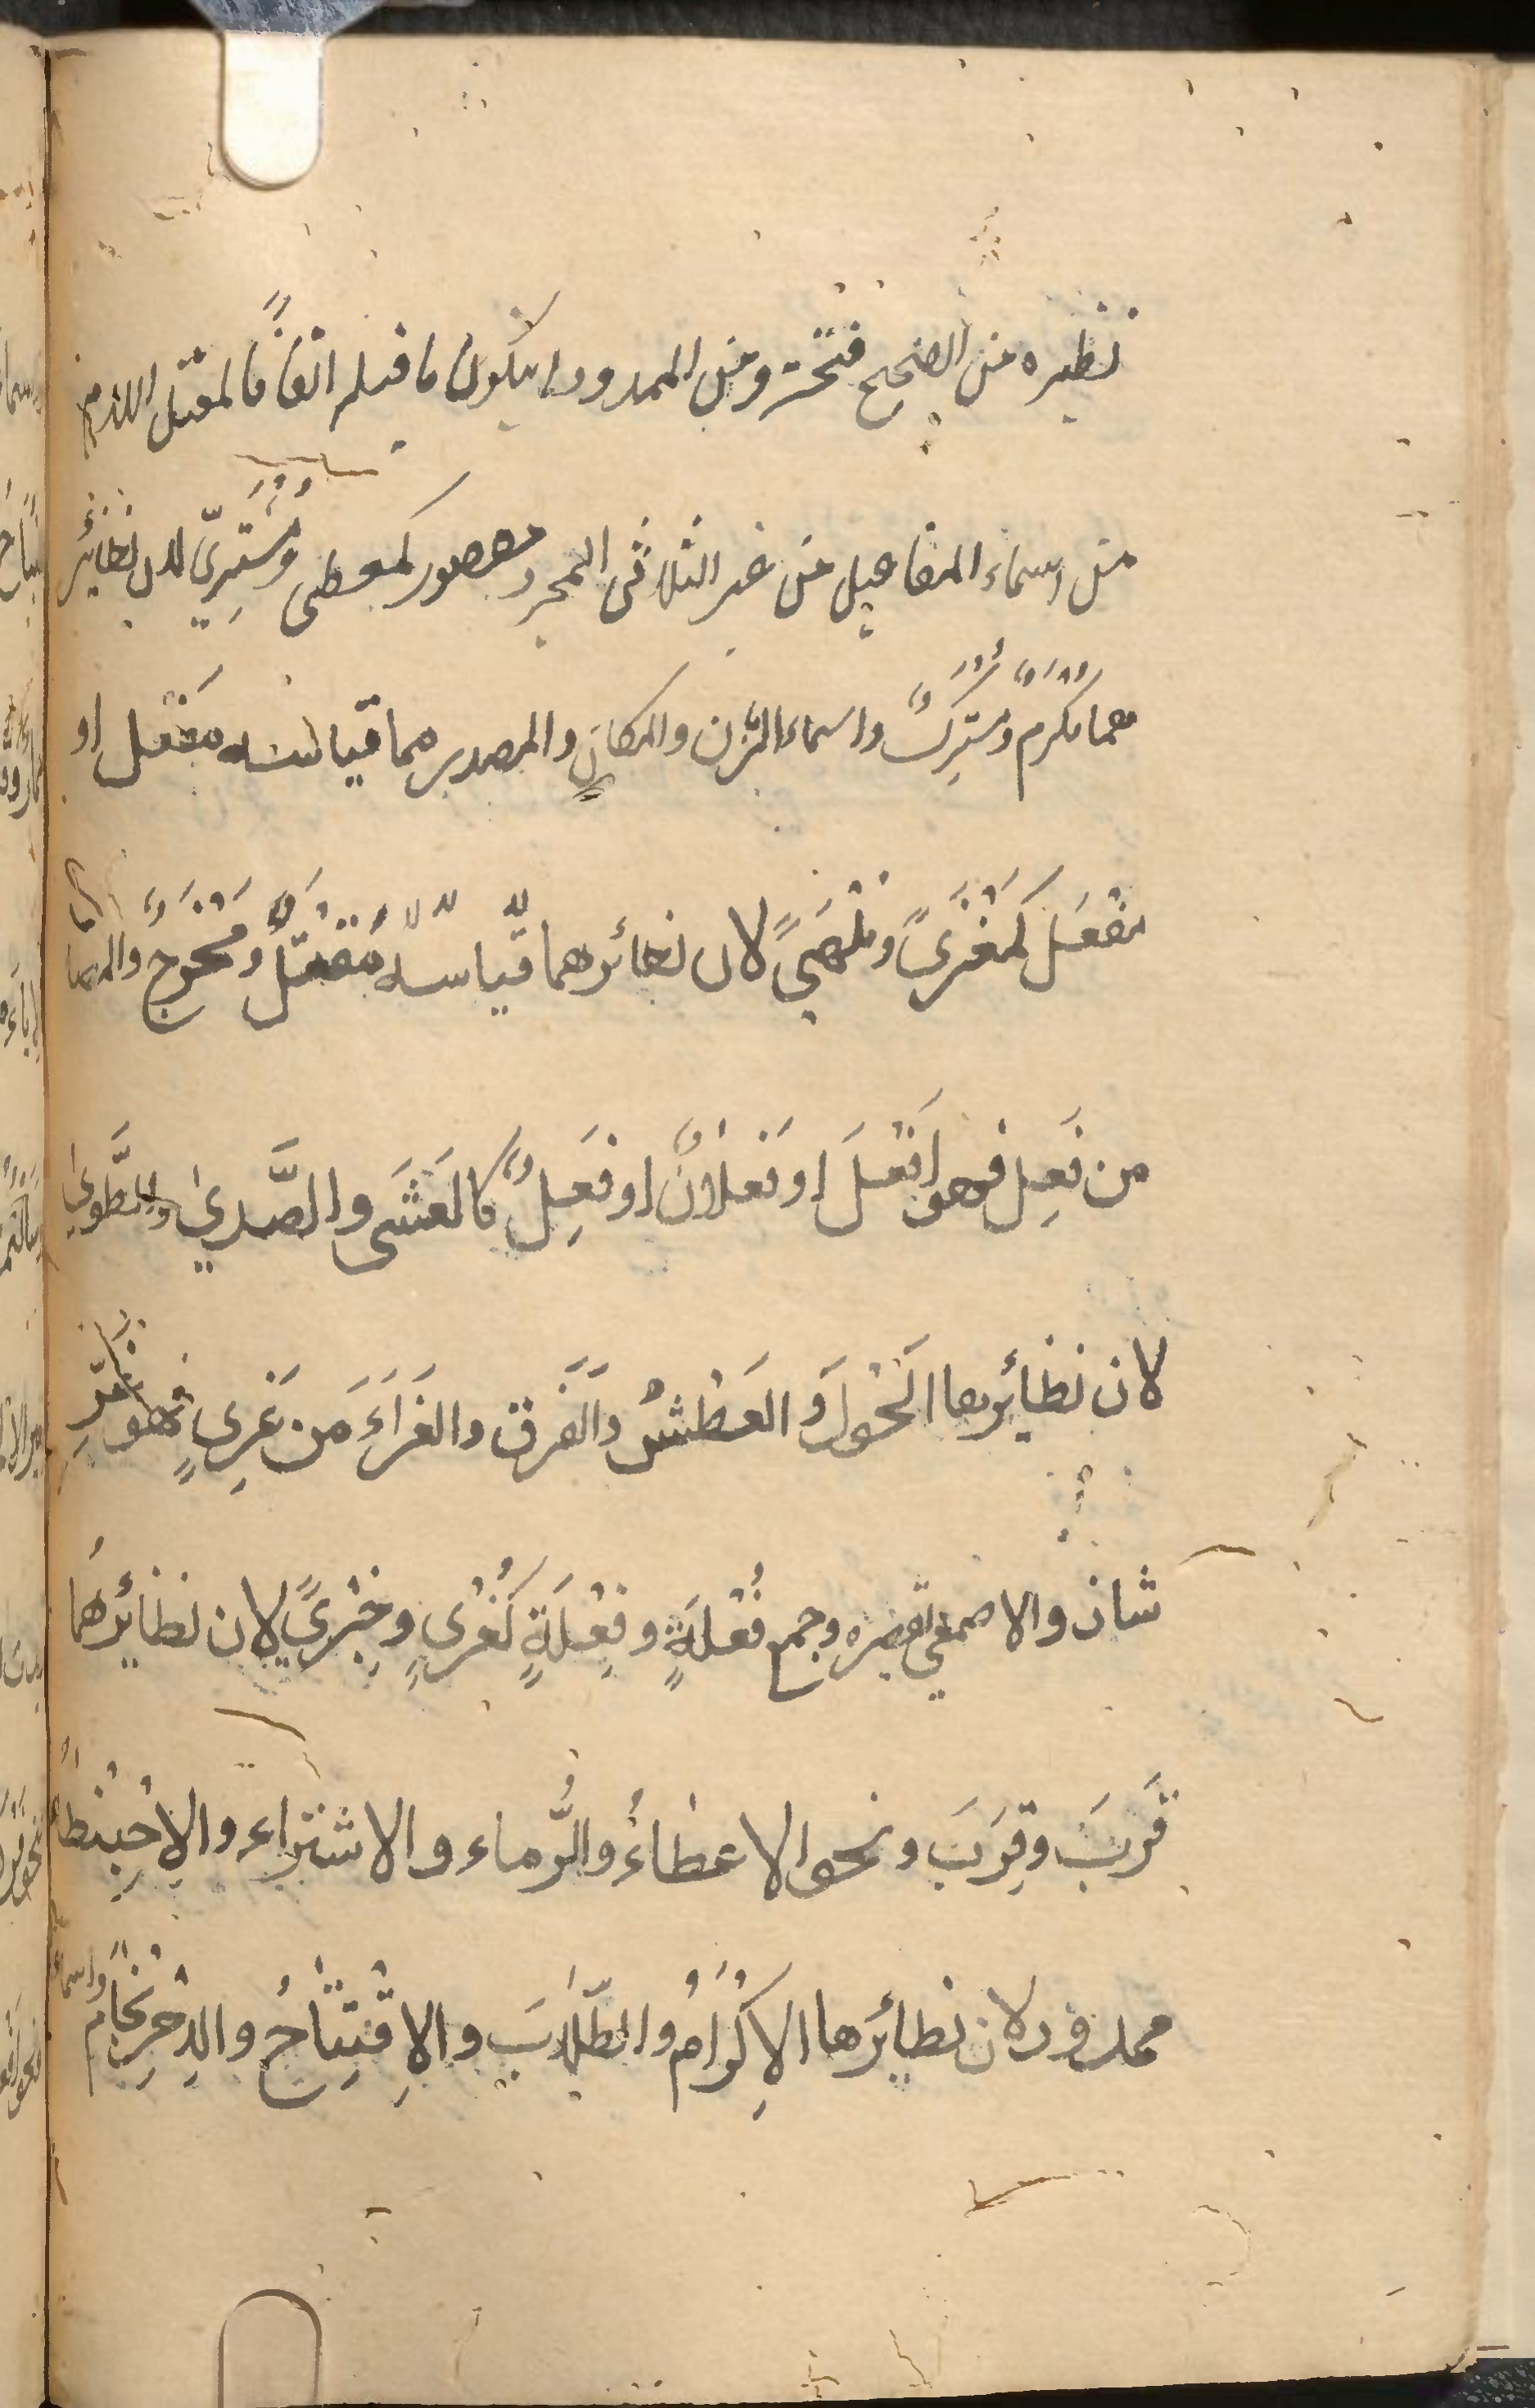 نظيره من الصحيح فتحة ومن الممدود ان يكون ما قبله الفًا فالمعتل اللام
من اسماء المفاعيل من غير الثلاثى المجرد مقصور كمعطى ومُشْتَرِيّ لان نظائر
هما مُكْرَمٌ ومُشْتَرَكٌ واسماء الزمن والمكان والمصدر مما قياسه مَفْعَل او
مفعَل كَمَغْزَىً ومَلْهَىً لان نظائرهما قياسه مَقْتَلٌ ومَخْرَجٌ والمصا
من فَعِل فهو اَفْعَلَ او فَعْلَانٌ او فَعِلٌ كالعَشَى والصَّدىٰ والطَّوىٰ
لان نظائرها الْحَوَلَ والعَطَشُ والفَرَق والغَرَاءَ من غَرِى فهو غَرٍ
شاذ والاصمعي يقصره وجمع فُعْلَةٍ وفِعْلَةٍ كَعُرًى وجِزًى لان نظائرهُما
قُرَبَ وقِرَبَ ونحو الاعطاءُ والرُّماء والاشتراء والاِحْبِنْطاءُ
ممدود لان نظائرها الاِكْرَامُ والطِّلَابَ والاِفْتِتَاحُ والاِحْرِنْجَامُ واسماء